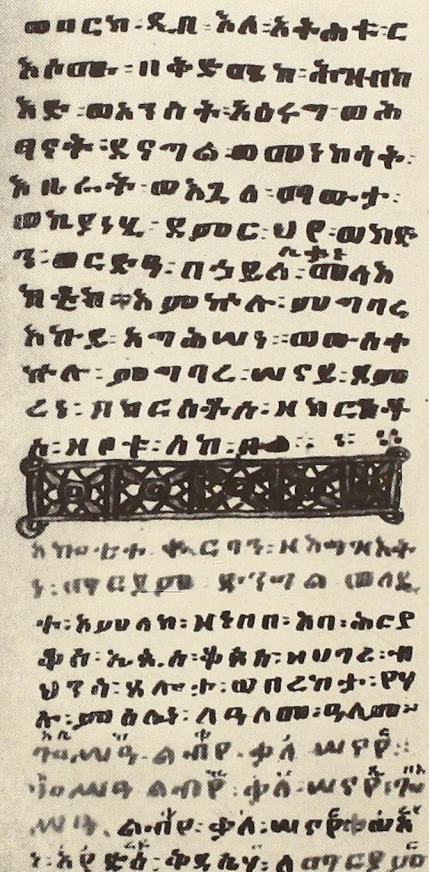 ወባርክ፡ ዲበ፡ እለ፡ አትሐቱ፡ ር
እሶሙ፡ በቅድሜከ፡ ሕዝብከ
እድ፡ ወአንስት፡ አዕሩግ፡ ወሕ
ፃናት፡ ደናግል፡ ወመነኮሳት፡
ወእጓለ፡ ማውታ፡
ወኪያነሂ፡ ደምር፡ ህየ፡
በኃይለ፡ መላእ
ክቲከ፡ እምኵሉ፡ ምግባረ
እኩይ፡ አግሕሠነ፡ ወውስተ
ኵሉ፡ ምግባረ፡ ሠናይ፡ ደም
ረነ፡ በክርስቶስ፡
ዘቦቱ፡ ለከ፡
አኰቴተ፡ ቍርባን፡ ዘእግዝእት
ነ፡ ማርያም፡ ድንግል፡ ወላዲ
ተ፡ አምላክ፡ ዘነበበ፡ አባ፡ ሕርያ
ቆስ፡ ኤጲስ፡ ቆጶስ፡ ዘሀገረ፡ ብ
ህንሳ፡ ጸሎታ፡ ወበረከታ፡ የሃ
ሉ፡ ምስሌነ፡ ለዓለመ፡ ዓለም፡
ጐሥዓ፡ ልብየ፡ ቃለ፡ ሠናየ፡
ጐሥዓ፡ ልብየ፡ ቃለ፡ ሠናየ፡ ጐ
ሥዓ፡ ልብየ፡ ቃለ፡ ሠናየ፡ ወአ
ነ፡ አየድዕ፡ ቅዳሴሃ፡ ለማርያም